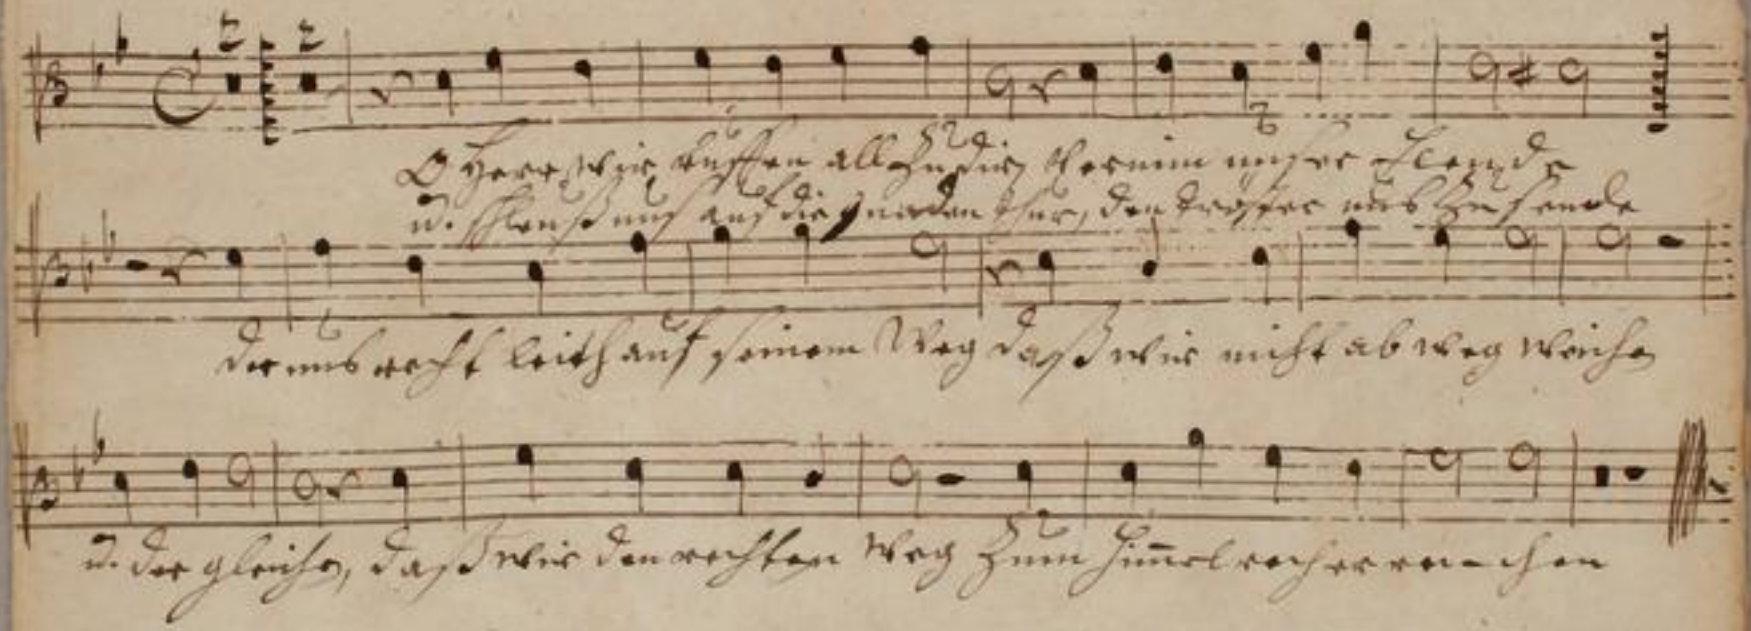 2 2
O Herr wir ruffen all Zu dir, Vernim unser Elende
u. schleuß uns auf die gnaden thür, den tröster uns Zu sende
der uns recht leith auf seinem Weg daß wir nicht ab weg weichen
u. der gleichen, daß wir den rechten Weg Zum Himmel